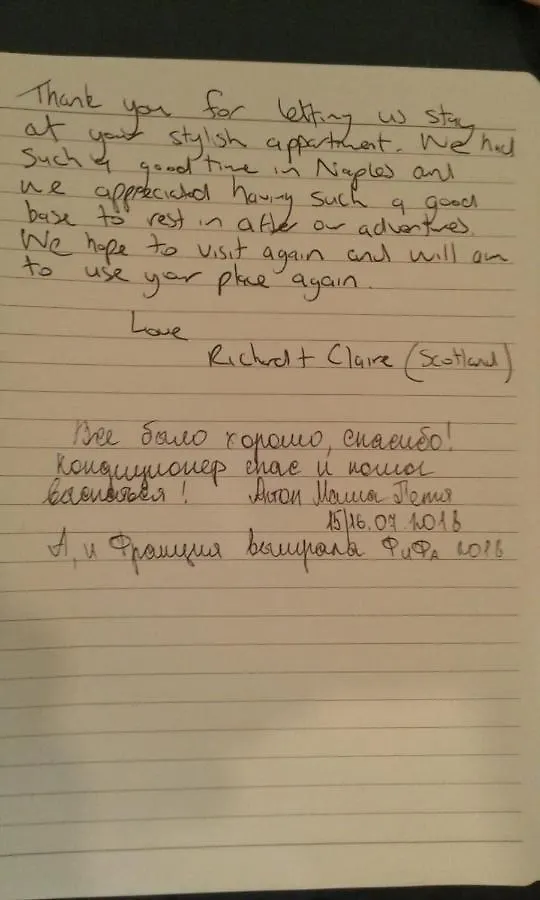 Thank you for letting us stay
at your stylish appartment. We had
such a good time in Naples and
we appreciated having such a good
base to rest in after our adventures.
We hope to visit again and will aim
to use your place again.
Love
Richard + Claire (Scotland)
Все было хорошо, спасибо!
Кондиционер спас и помог
выспаться! Антон Маша Петя
15/16.07.2018
А, и Франция выиграла ФиФа 2018